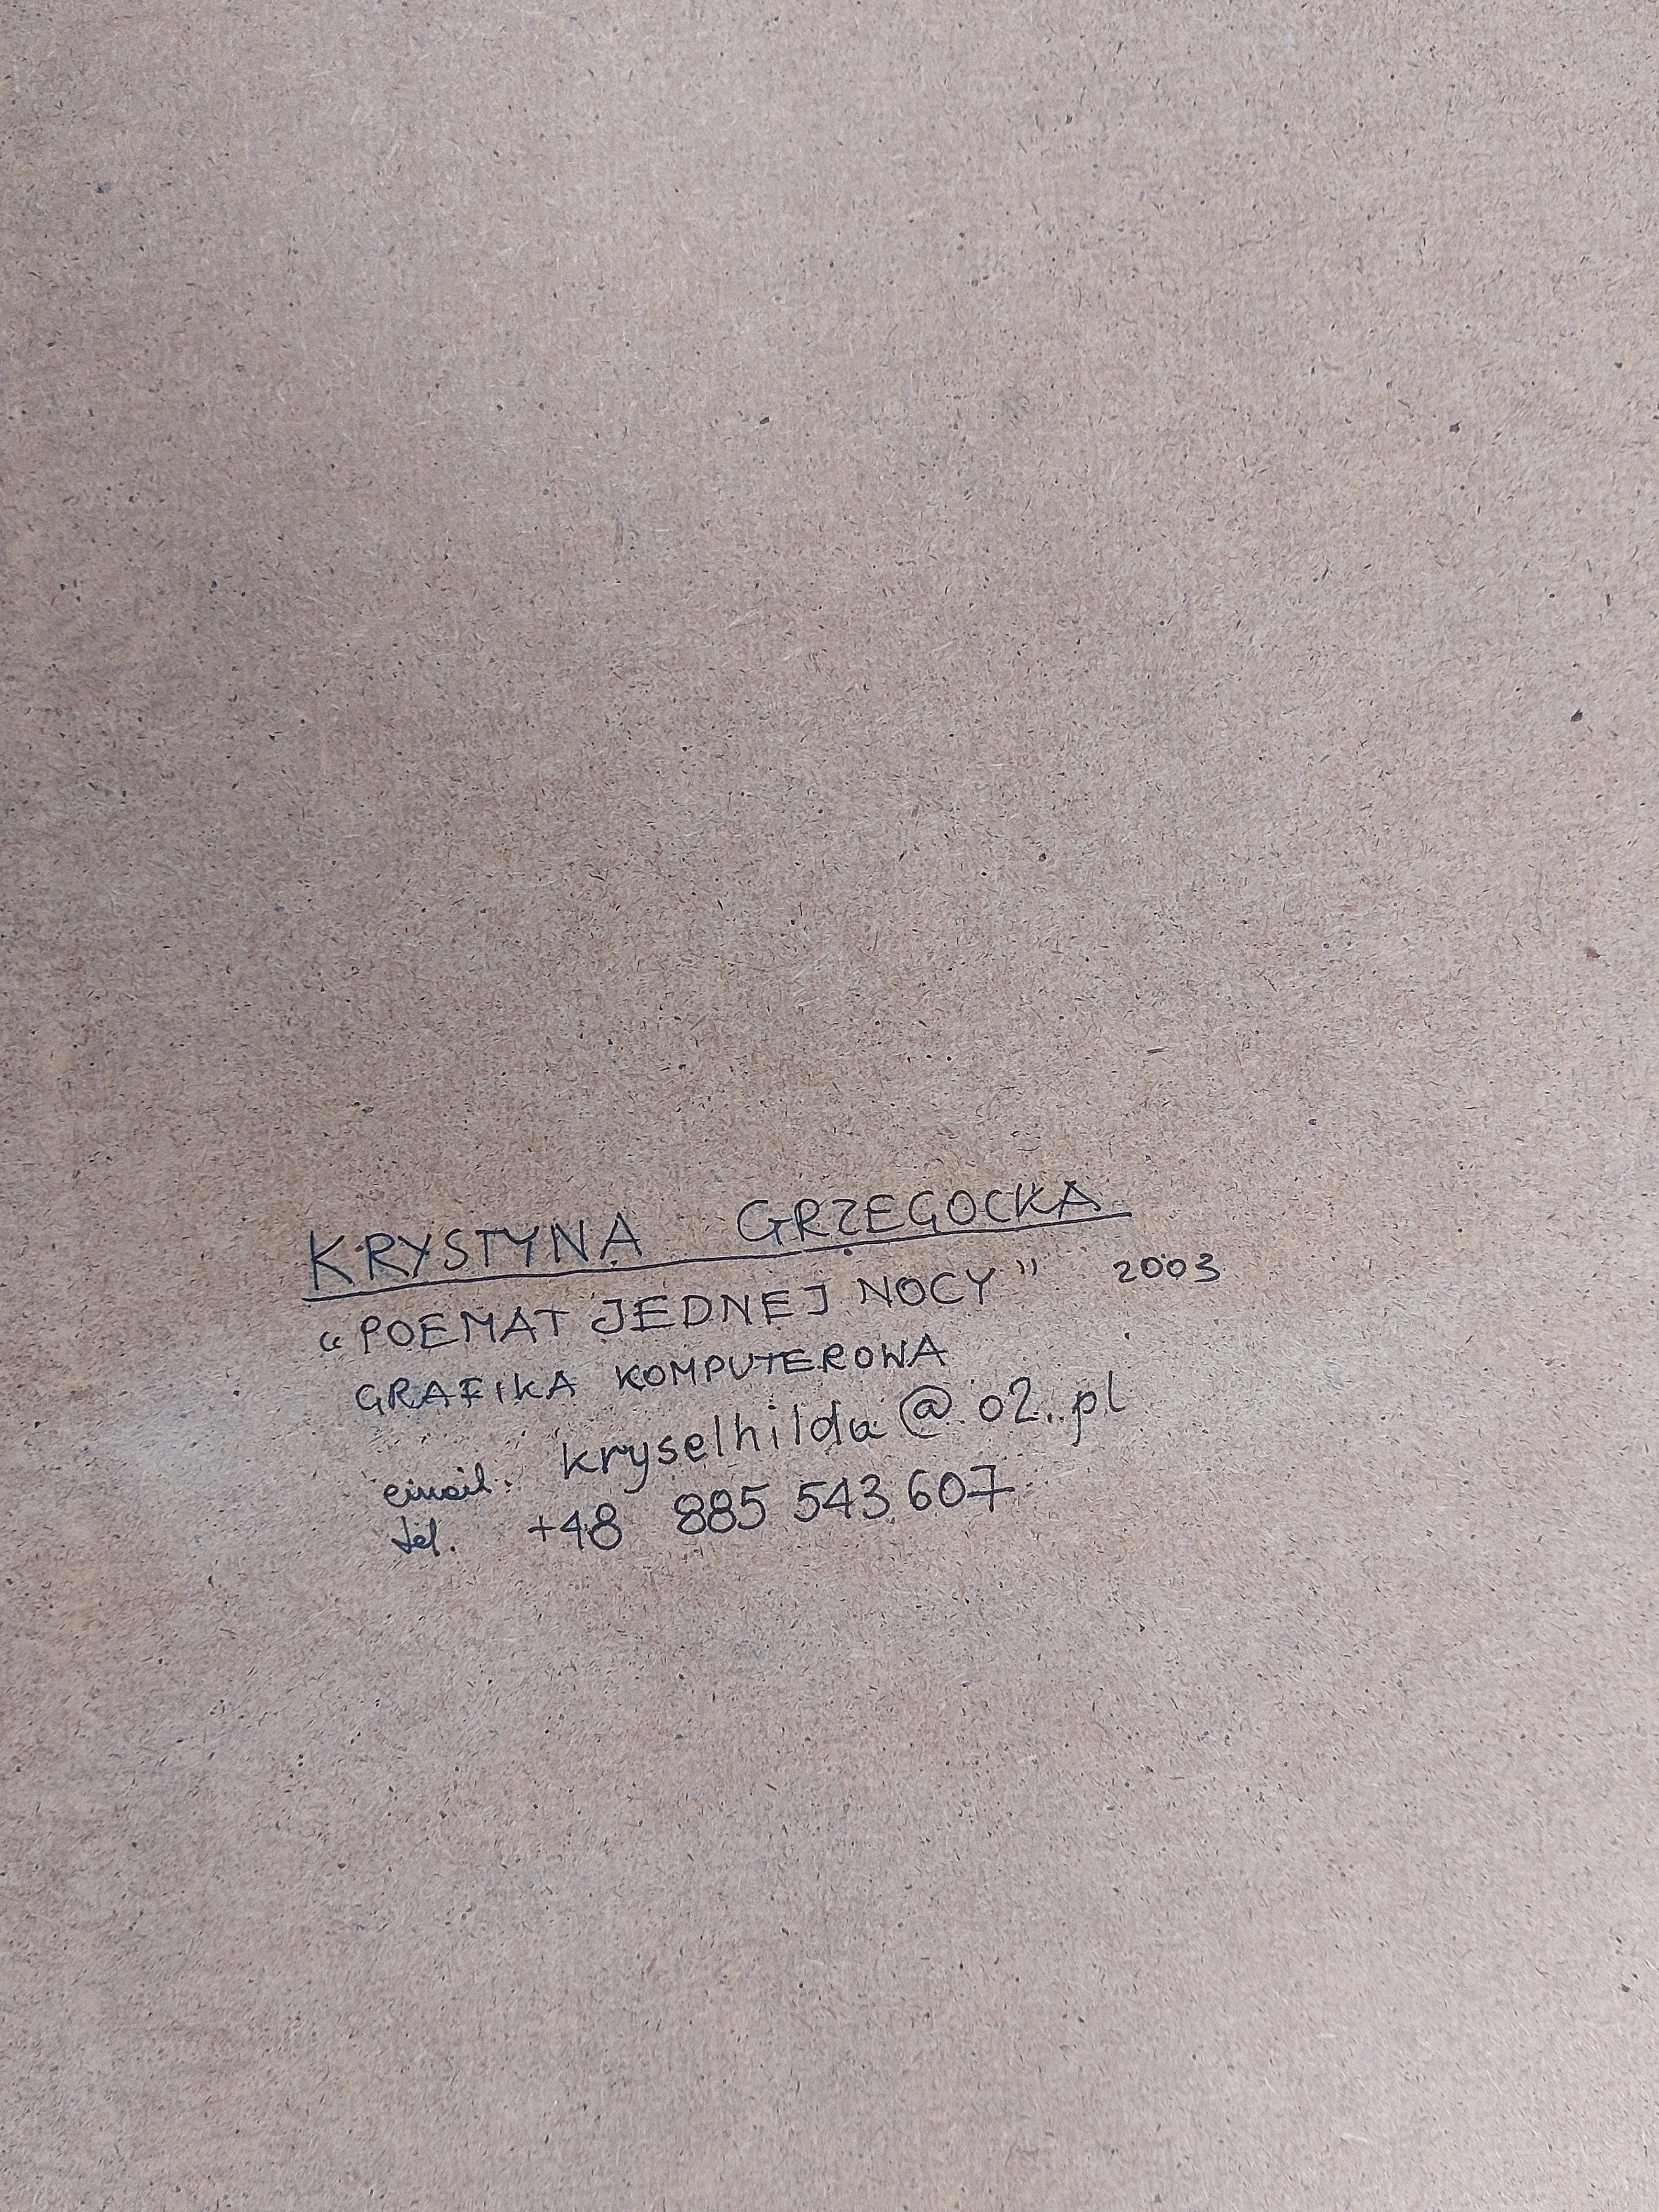 KRYSTYNA GRZEGOCKA
"POEMAT JEDNEJ NOCY" 2003
GRAFIKA KOMPUTEROWA
email: kryselhilda@o2.pl
tel. +48 885 543 607